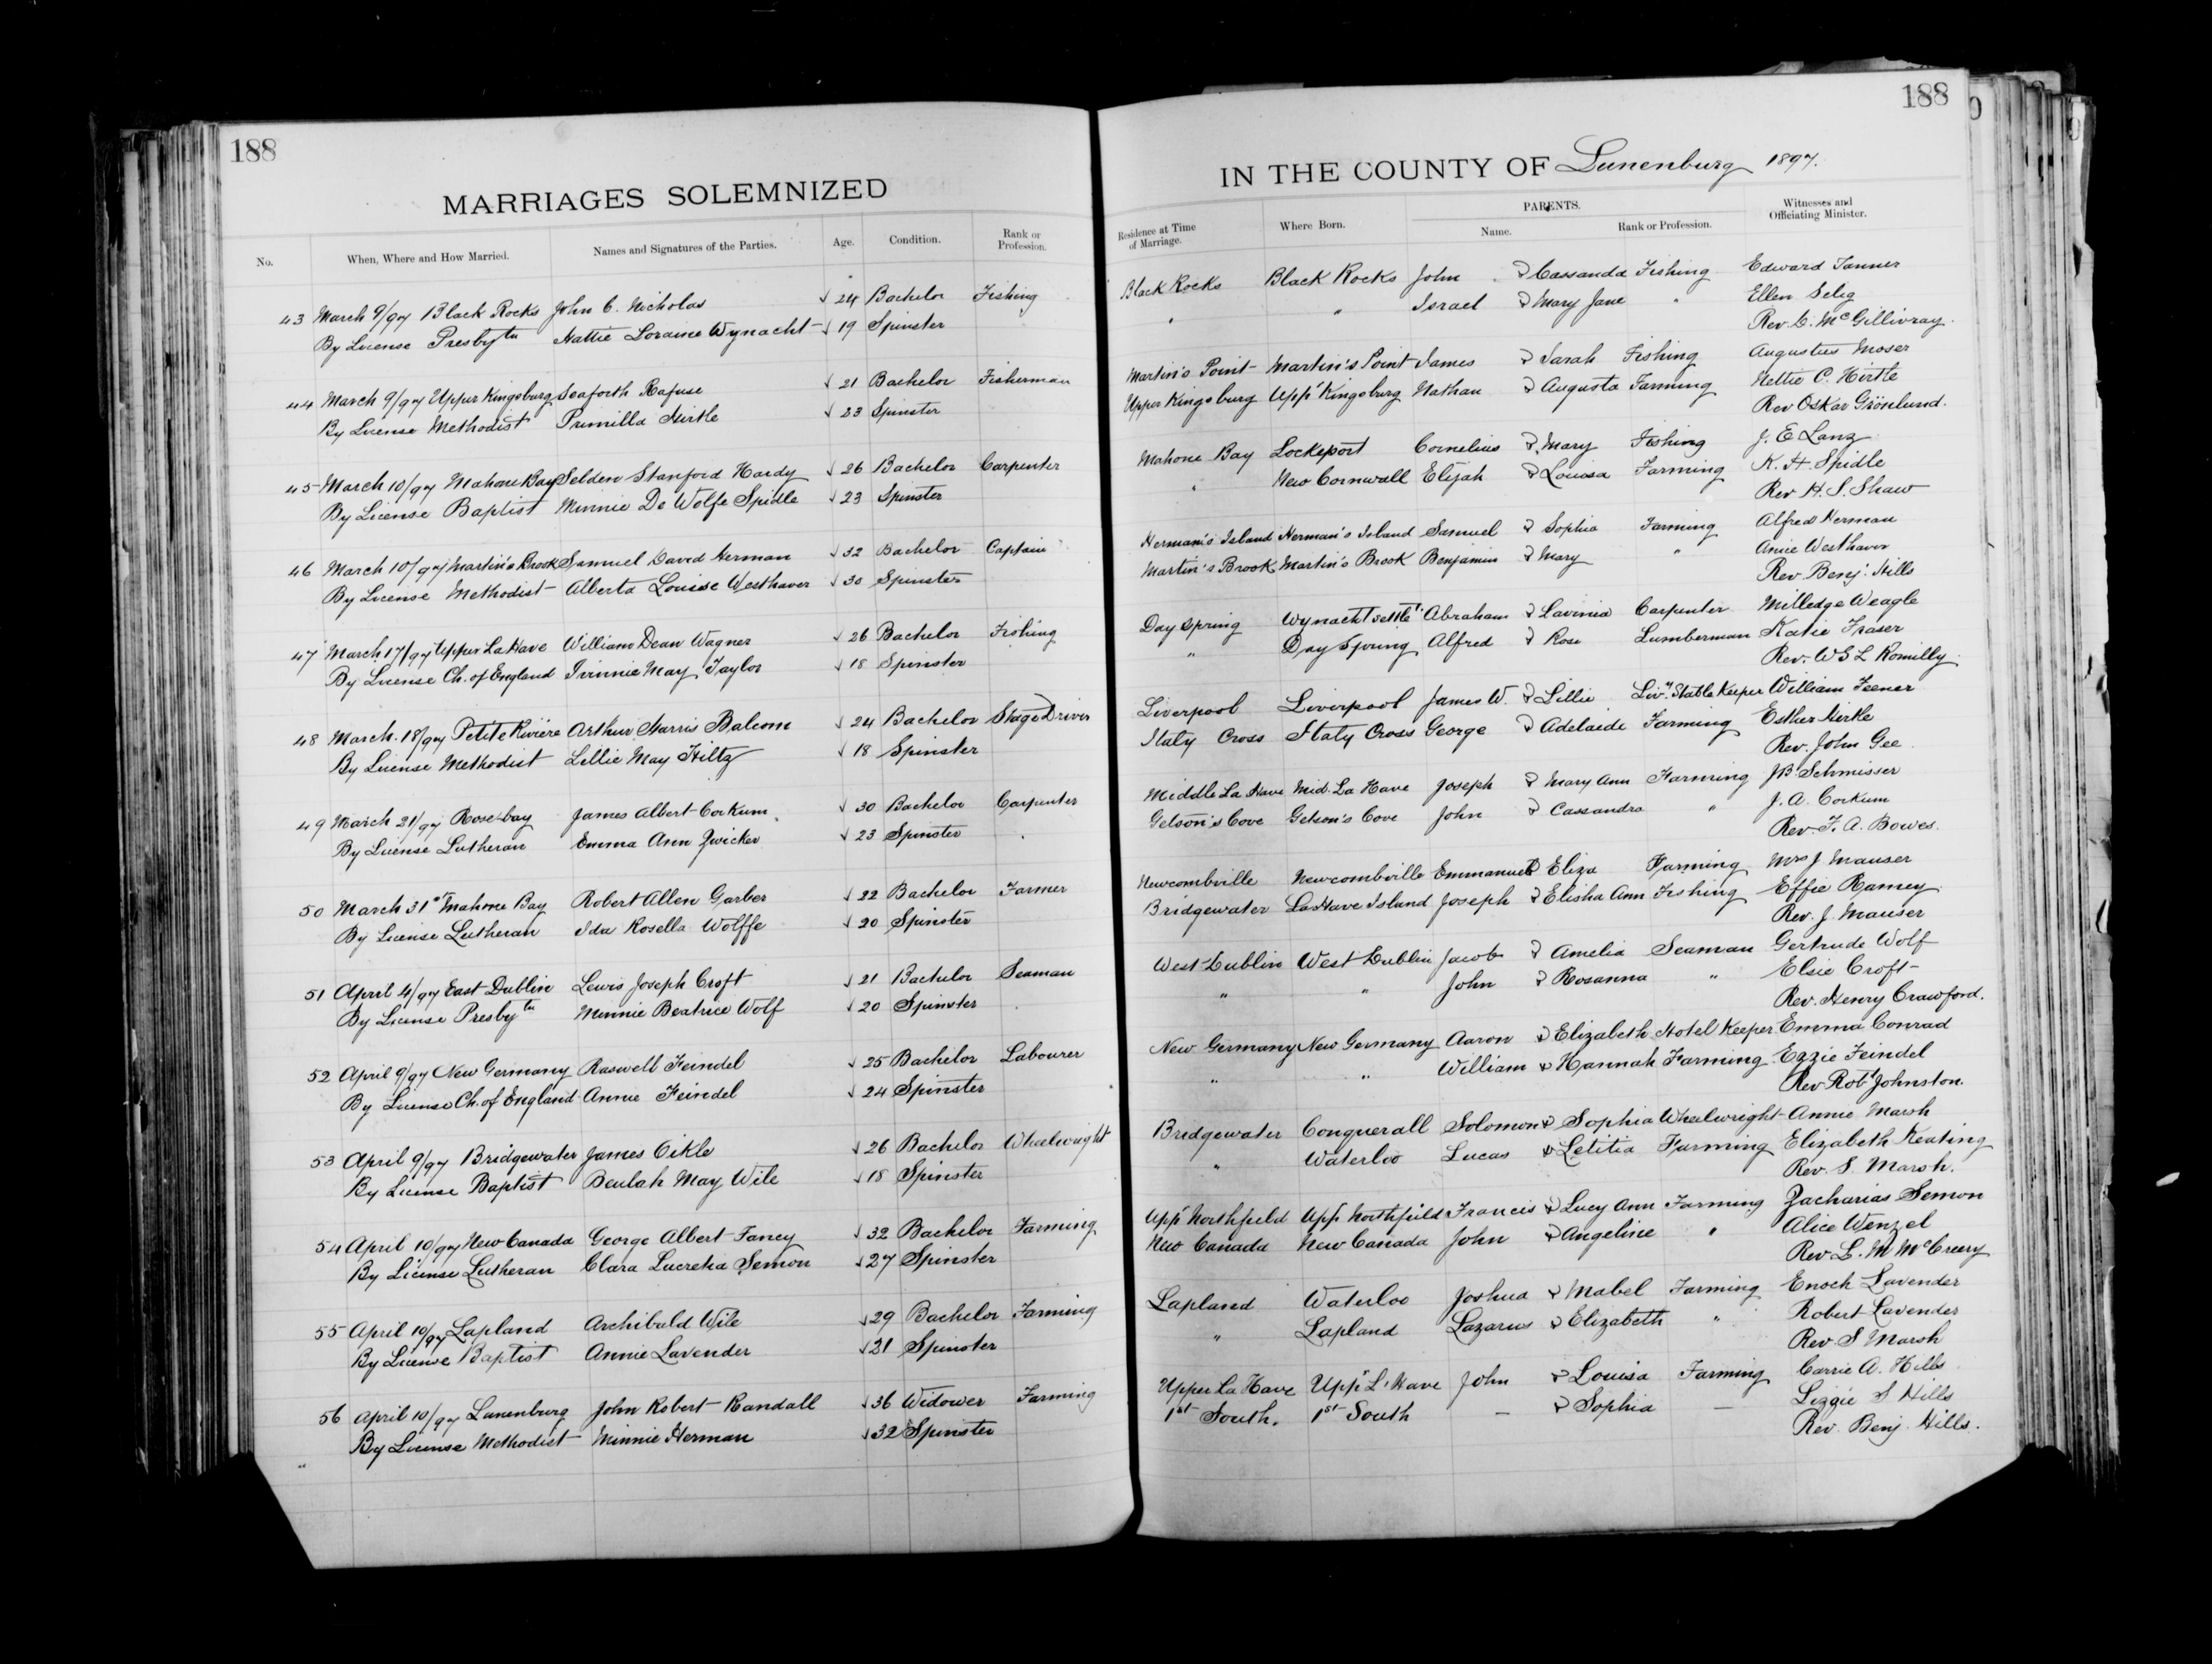 188
MARRIAGES SOLEMNIZED
No. When, Where and How Married. Names and Signatures of the Parties. Age. Condition. Rank or Profession.
43 March 9/97 Black Rocks John C. Nicholas 24 Bachelor Fishing
By License Presbytn Hattie Loraine Wynacht 19 Spinster
44 March 9/97 Upper Kingsburg Seaforth Rafuse 21 Bachelor Fisherman
By License Methodist Primilla Hirtle 23 Spinster
45 March 10/97 Mahone Bay Selden Stanford Hardy 26 Bachelor Carpenter
By License Baptist Minnie De Wolfe Spidle 23 Spinster
46 March 10/97 Martin's Brook Samuel David Herman 32 Bachelor Captain
By License Methodist Alberta Louise Westhaver 30 Spinster
47 March 17/97 Upper LaHave William Dean Wagner 26 Bachelor Fishing
By License Ch. of England May Taylor 18 Spinster
48 March 18/97 Petite Rivière Arthur Harris Balcom 24 Bachelor Stage Driver
By License Methodist Lillie May Hiltz 18 Spinster
49 March 21/97 Rose bay James Albert Corkum 30 Bachelor Carpenter
By License Lutheran Emma Ann Zwicker 23 Spinster
50 March 31st Mahone Bay Robert Allen Garber 22 Bachelor Farmer
By License Lutheran Ida Rosella Wolffe 20 Spinster
51 April 4/97 East Dublin Lewis Joseph Croft 21 Bachelor Seaman
By License Presbytn Minnie Beatrice Wolf 20 Spinster
52 April 9/97 New Germany Raswell Feindel 25 Bachelor Labourer
By License Ch. of England Annie Feindel 24 Spinster
53 April 9/97 Bridgewater James Oikle 26 Bachelor Wheelwright
By License Baptist Beulah May Wile 18 Spinster
54 April 10/97 New Canada George Albert Fancy 32 Bachelor Farming
By License Lutheran Clara Lucretia Semon 27 Spinster
55 April 10/97 Lapland Archibald Wile 29 Bachelor Farming
By License Baptist Annie Lavender 21 Spinster
56 April 10/97 Lunenburg John Robert Randall 36 Widower Farming
By License Methodist Minnie Herman 32 Spinster
188
IN THE COUNTY OF Lunenburg 1897.
Residence at Time of Marriage. Where Born. PARENTS. Name. Rank or Profession. Witnesses and Officiating Minister.
Black Rocks Black Rocks John & Cassanda Fishing Edward Tanner
" " Israel & Mary Jane " Ellen Selig
Rev. D. McGillivray.
Martin's Point Martin's Point James & Sarah Fishing Augustus Moser
Upper Kingsburg Uppr Kingsburg Nathan & Augusta Farming Nettie C. Hirtle
Rev Oskar Grönlund.
Mahone Bay Lockeport Cornelius & Mary Fishing J. E Lanz
" New Cornwall Elijah & Louisa Farming K. H. Spidle
Rev H. S. Shaw
Herman's Island Herman's Island Samuel & Sophia Farming Alfred Herman
Martin's Brook Martin's Brook Benjamin & Mary " Annie Westhaver
Rev Benj. Hills
Day Spring Wynacht Settlt. Abraham & Lavinia Carpenter Milledge Weagle
" Day Spring Alfred & Rose Lumberman Katie Fraser
Rev. W G L Romilly.
Liverpool Liverpool James W. & Lillie Livy. Stable Keeper William Feener
Italy Cross Italy Cross George & Adelaide Farming Esther Hirtle
Rev. John Gee
Middle La Have Mid. La Have Joseph & Mary Ann Farming J B Schmisser
Getson's Cove Getson's Cove John & Cassandra " J. A. Corkum
Rev. F. A. Bowes.
Newcombville Newcombville Emmanuel & Eliza Farming Mrs J. Mauser
Bridgewater LaHave Island Joseph & Elisha Ann Fishing Effie Ramey
Rev. J. Mauser
West Dublin West Dublin Jacob & Amelia Seaman Gertrude Wolf
" " John & Rosanna " Elsie Croft
Rev. Henry Crawford.
New Germany New Germany Aaron & Elizabeth Hotel Keeper Emma Conrad
" " William & Hannah Farming Ezzie Feindel
Rev Robt Johnston.
Bridgewater Conquerall Solomon & Sophia Wheelwright Annie Marsh
" Waterloo Lucas & Letitia Farming Elizabeth Keating
Rev. S. Marsh.
Uppr Northfield Uppr Northfield Francis & Lucy Ann Farming Zacharias Semon
New Canada New Canada John & Angeline " Alice Wenzel
Rev L. M McCreery
Lapland Waterloo Joshua & Mabel Farming Enoch Lavender
" Lapland Lazarus & Elizabeth " Robert Lavender
Rev. S Marsh
Upper La Have Uppr L'Have John & Louisa Farming Carrie A. Hills
1st South. 1st South — & Sophia — Lizzie S Hills
Rev. Benj. Hills.